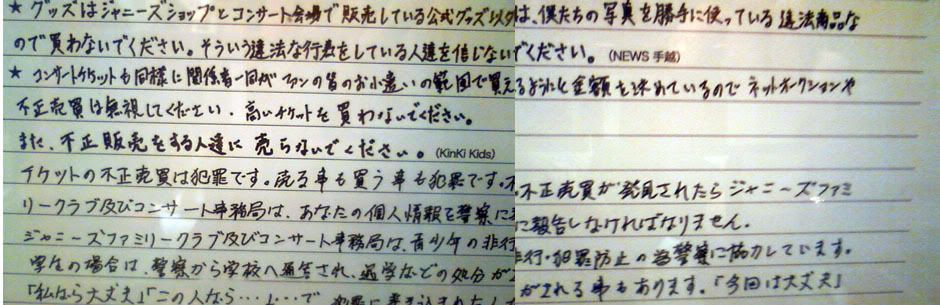 ★ グッズはジャニーズショップとコンサート会場で販売している公式グッズ以外は、僕たちの写真を勝手に使っている違法商品な
ので買わないでください。そういう違法な行為をしている人達を信じないでください。(NEWS 手越)
★ コンサートチケットも同様に関係者一同がファンの皆のお小遣いの範囲で買えるようにと金額を決めているのでネットオークションや
不正売買は無視してください。高いチケットを買わないでください。
また、不正販売をする人達に売らないでください。(KinKi Kids)
チケットの不正売買は犯罪です。売る事も買う事も犯罪です。不正売買が発見されたらジャニーズファミ
リークラブ及びコンサート事務局は、あなたの個人情報を警察に報告しなければなりません.
ジャニーズファミリークラブ及びコンサート事務局は、青少年の非行・犯罪防止の為警察に協力しています。
学生の場合は、警察から学校へ通告され、退学などの処分がされる事もあります。「今回は大丈夫」
「私なら大丈夫」「この人なら